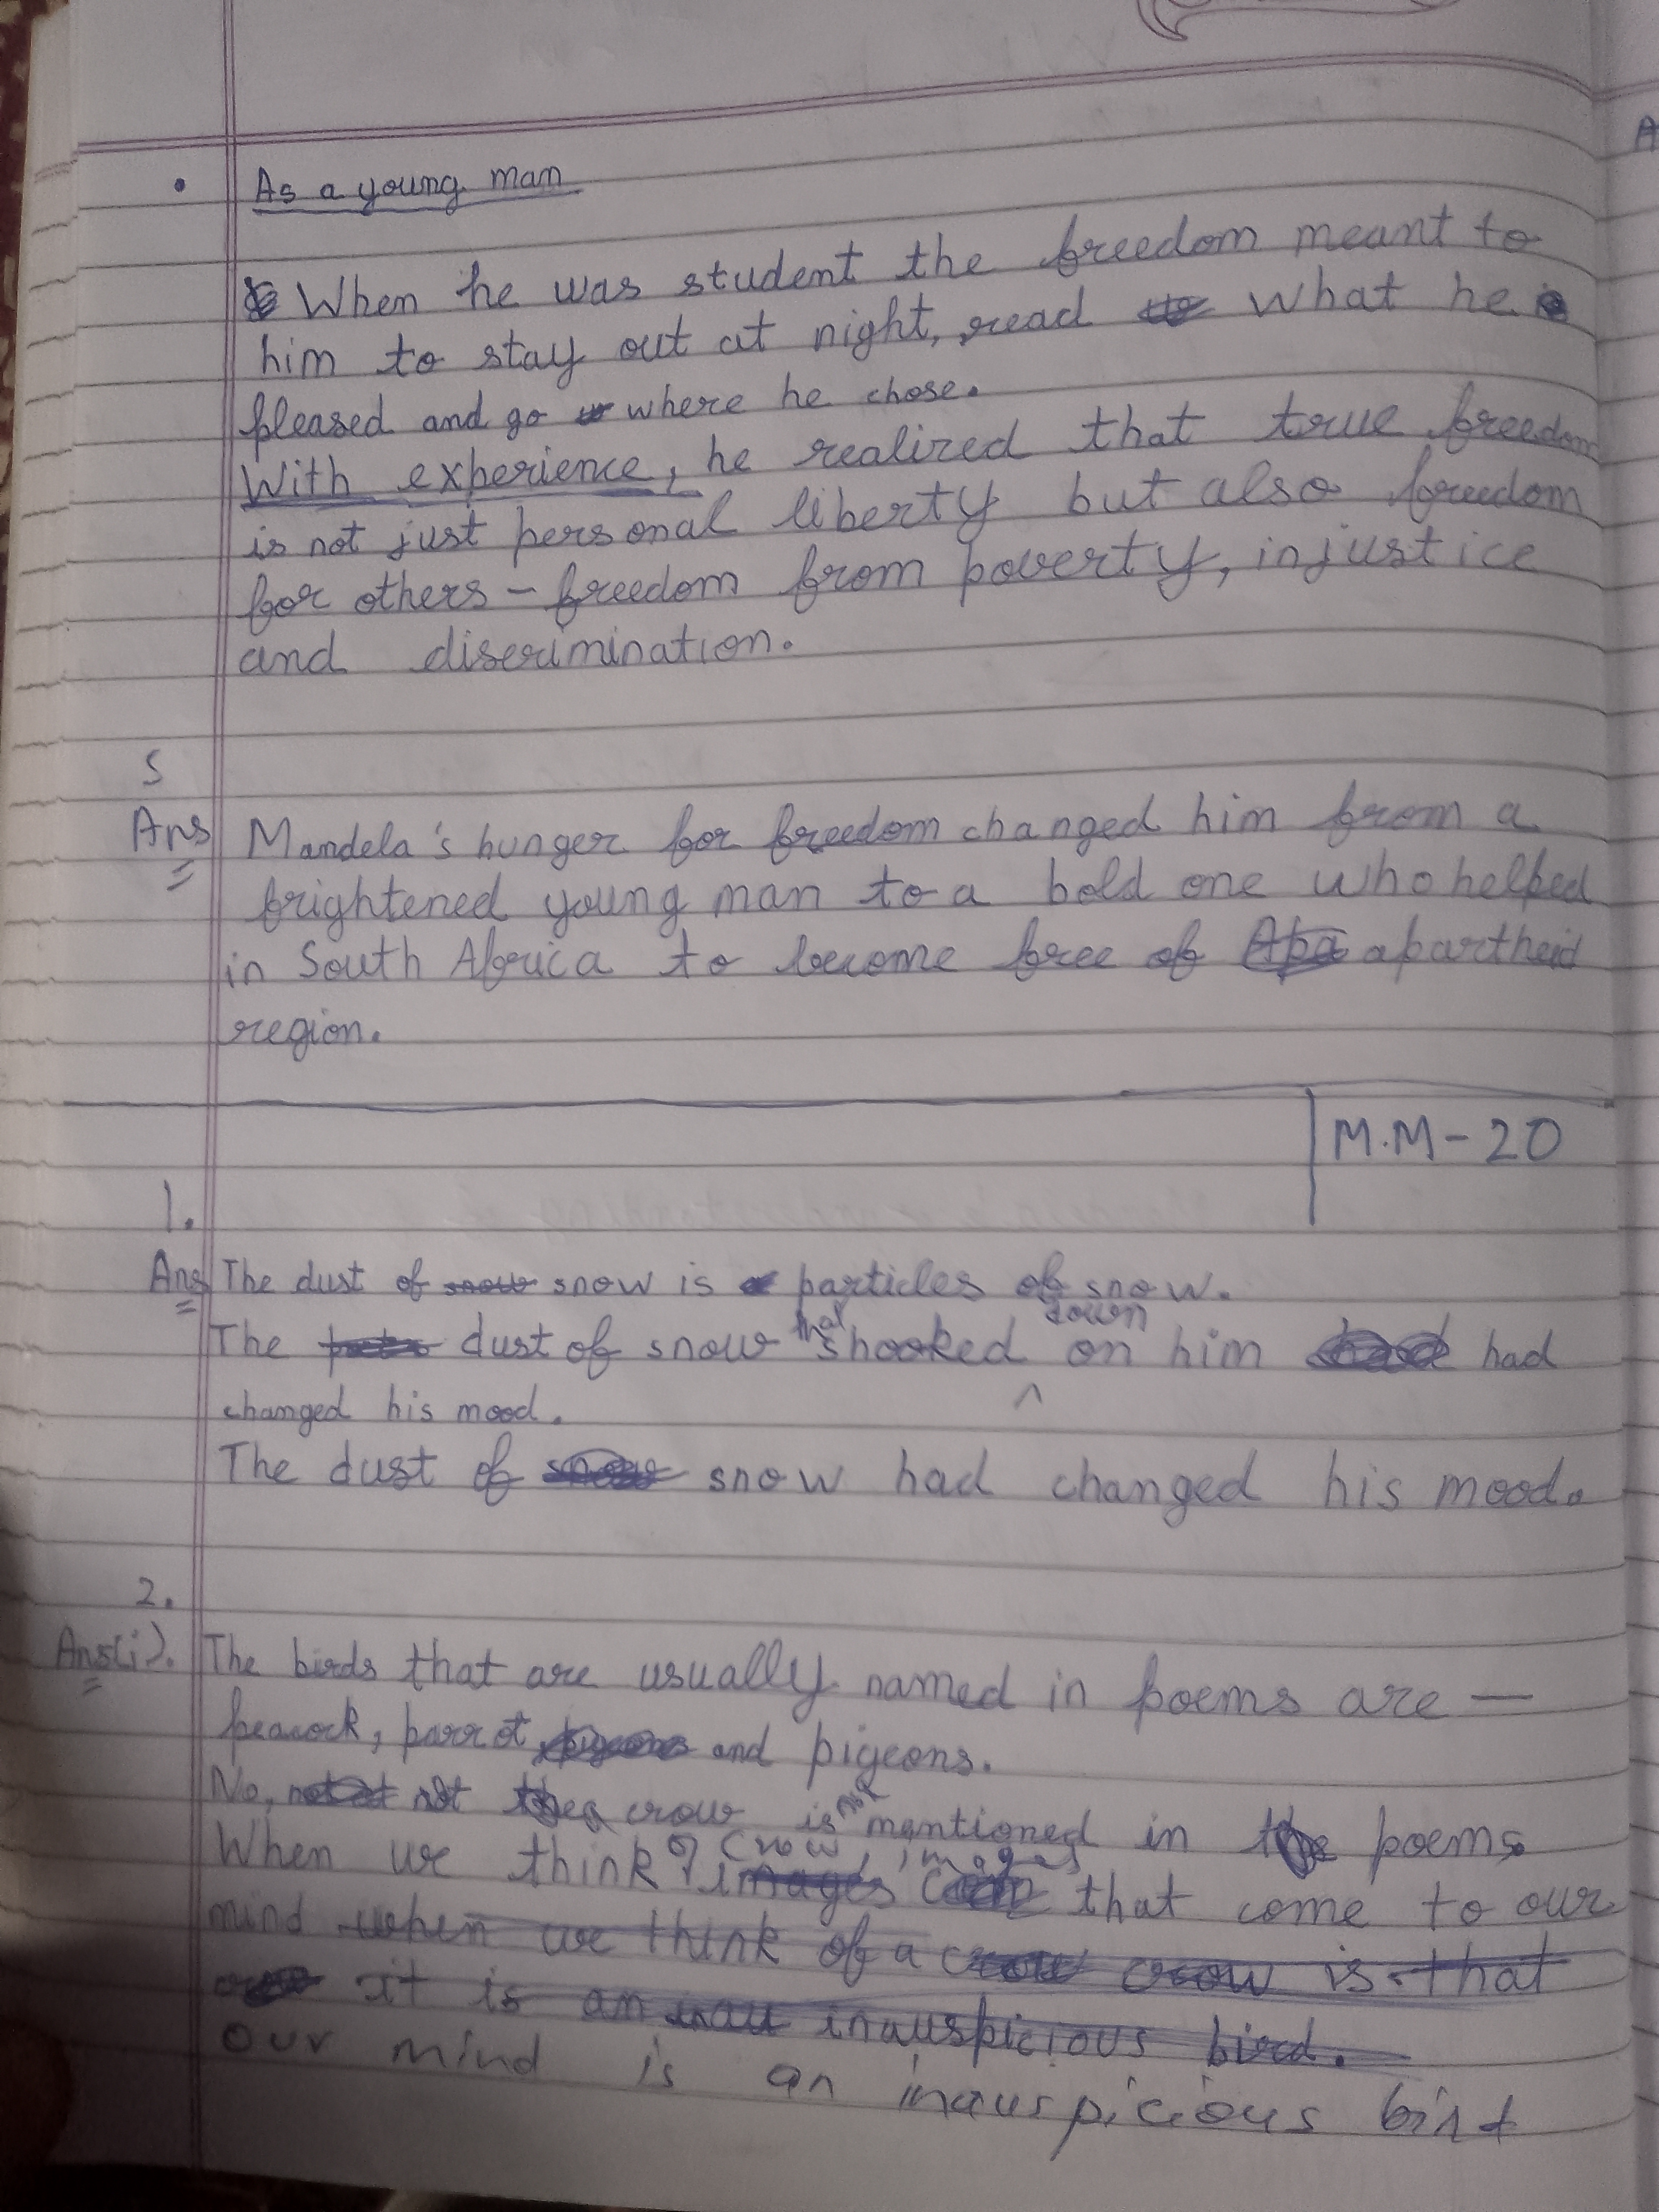 • As a young man
When he was student the freedom meant to
him to stay out at night, read what he
pleased and go where he chose.
With experience, he realized that true freedom
is not just personal liberty but also freedom
for others – freedom from poverty, injustice
and discrimination.
5
Ans Mandela's hunger for freedom changed him from a
frightened young man to a bold one who helped
in South Africa to become free of apartheid
region.
M.M – 20
1.
Ans The dust of snow snow is particles of snow.
that down
The dust of snow shooked on him had
changed his mood.
The dust of snow had changed his mood.
2.
Ans(i). The birds that are usually named in poems are —
peacock, parrot, pigeons and pigeons.
No, not crow is not mentioned in poems
of Crow, images
When we think images that come to our
mind when we think of a crow is that
it is an inauspicious bird.
our mind is an inauspicious bird
A